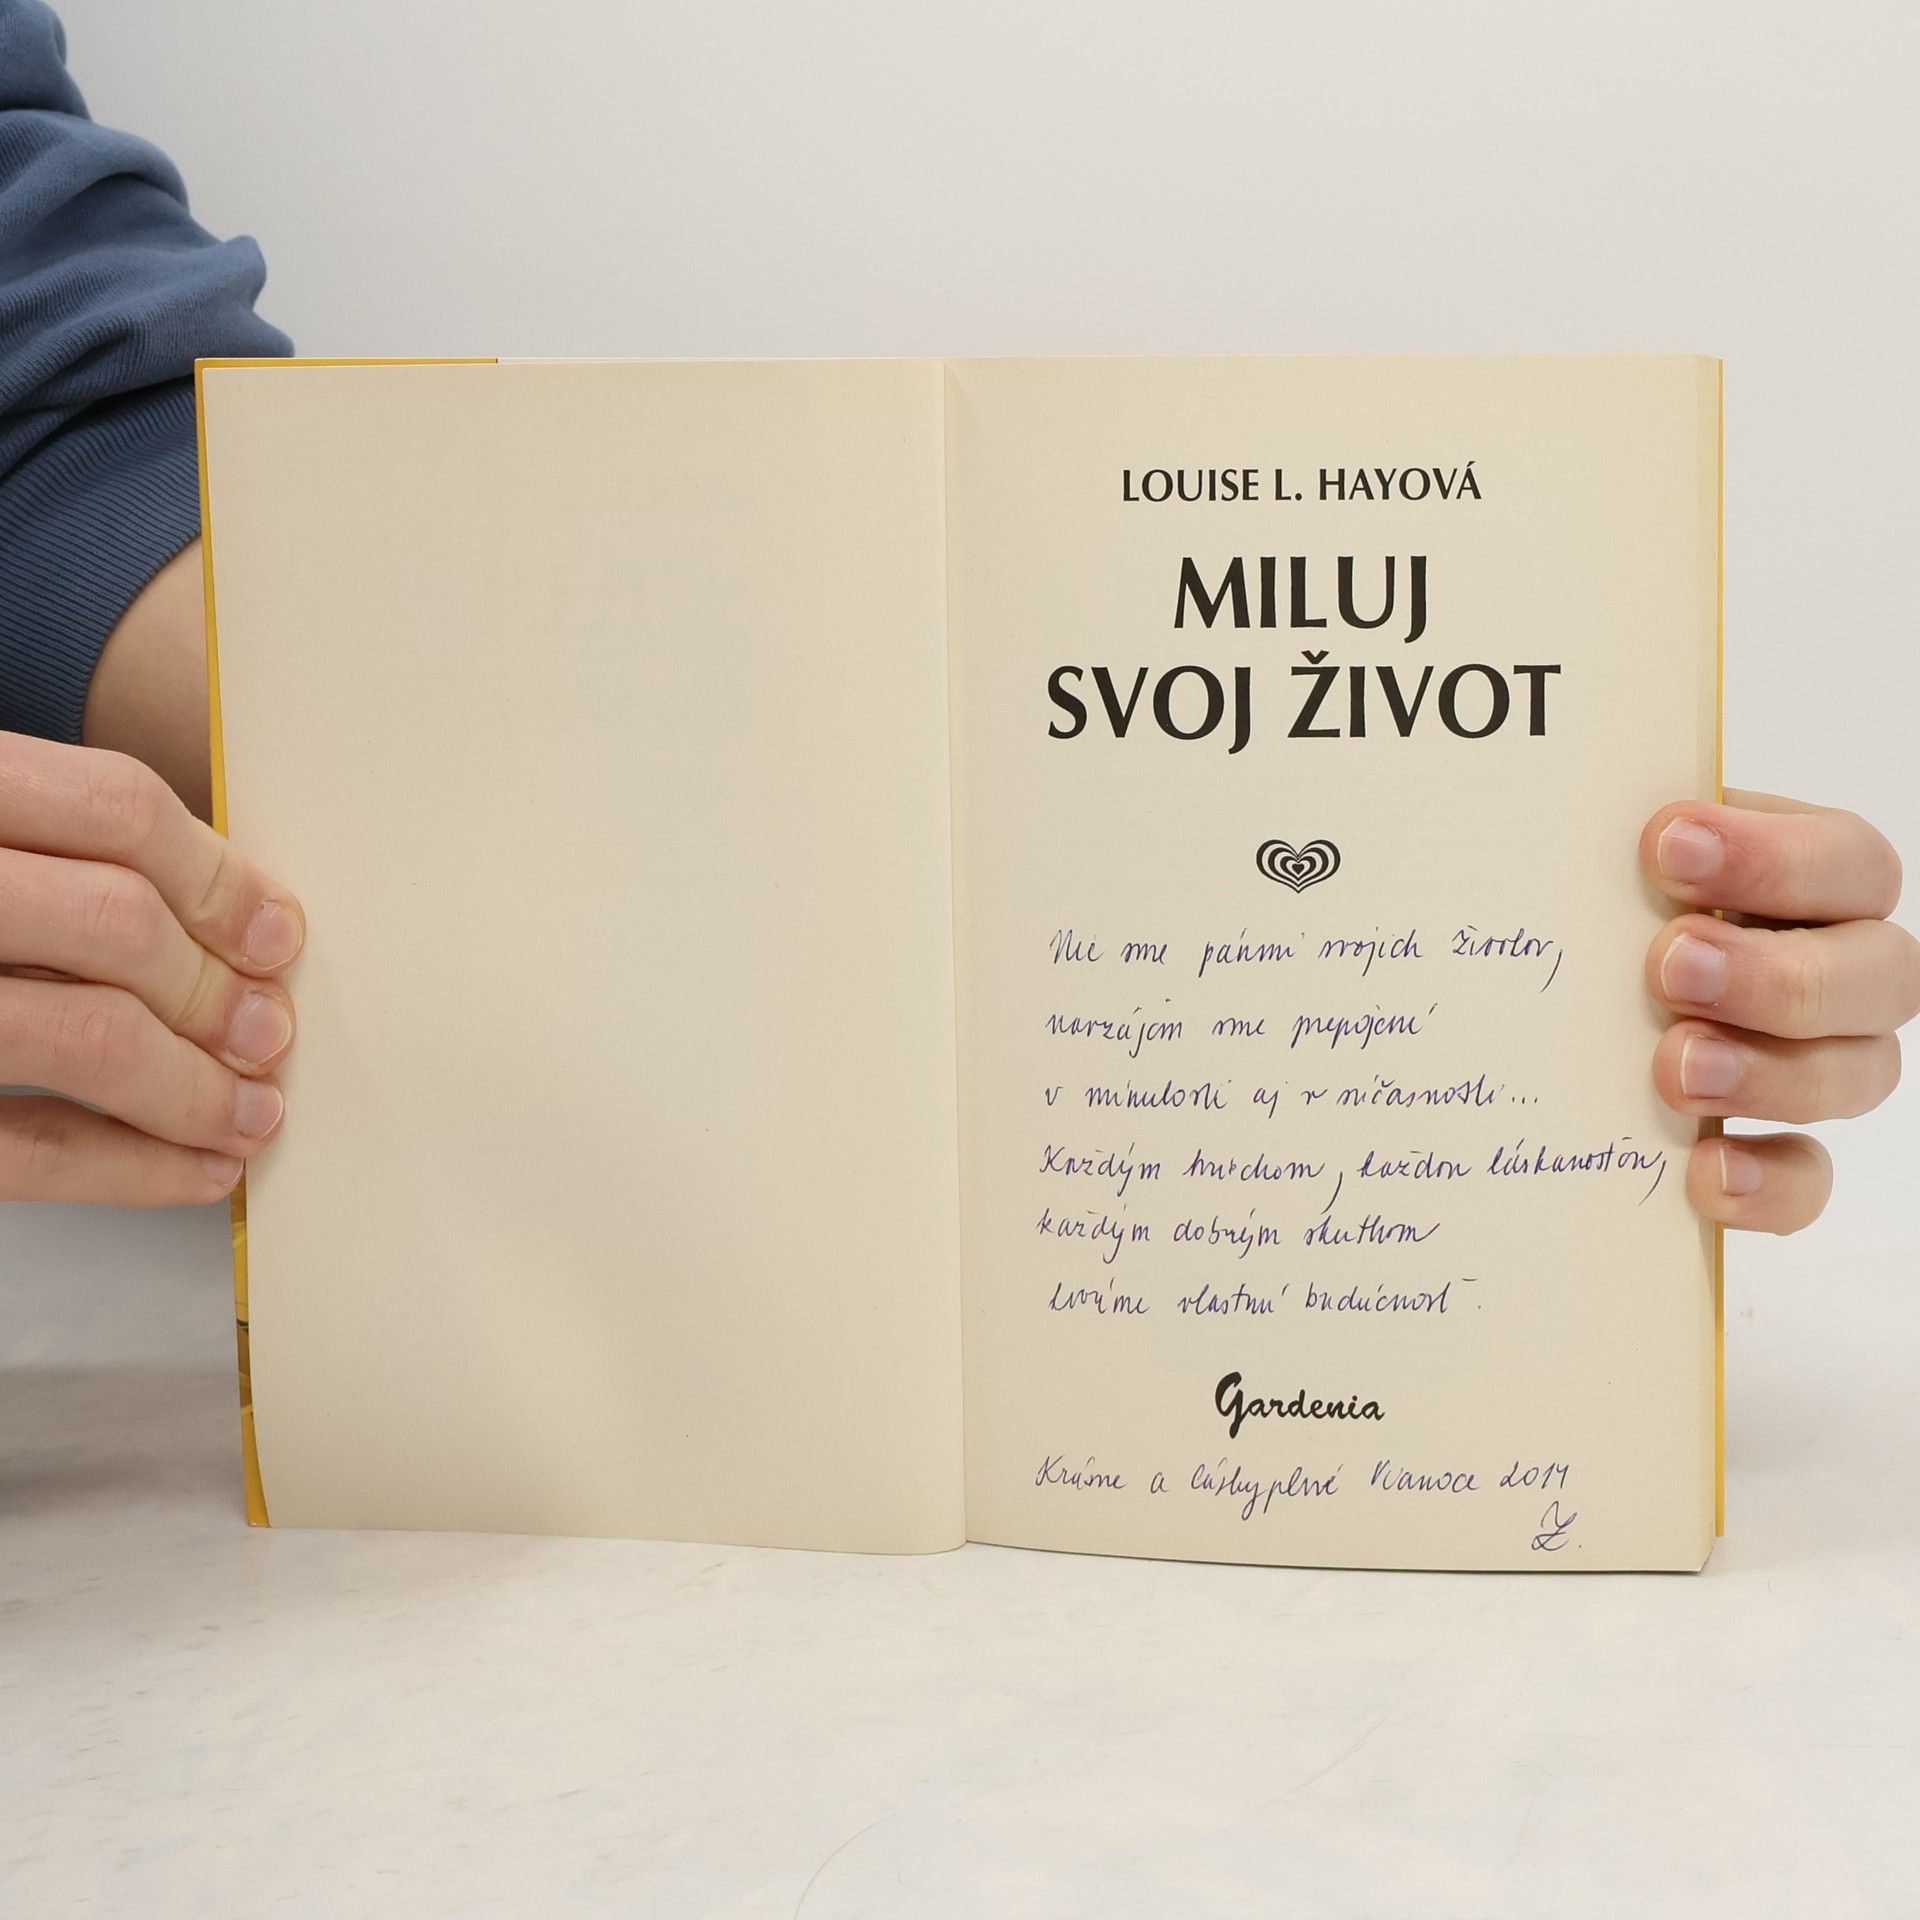 LOUISE L. HAYOVÁ
MILUJ
SVOJ ŽIVOT
Nie sme pánmi svojich životov,
navzájom sme prepojení
v minulosti aj v súčasnosti...
Každým hriechom, každou láskavosťou,
každým dobrým skutkom
tvoríme vlastnú budúcnosť.
Gardenia
Krásne a láskyplné Vianoce 2014
Z.